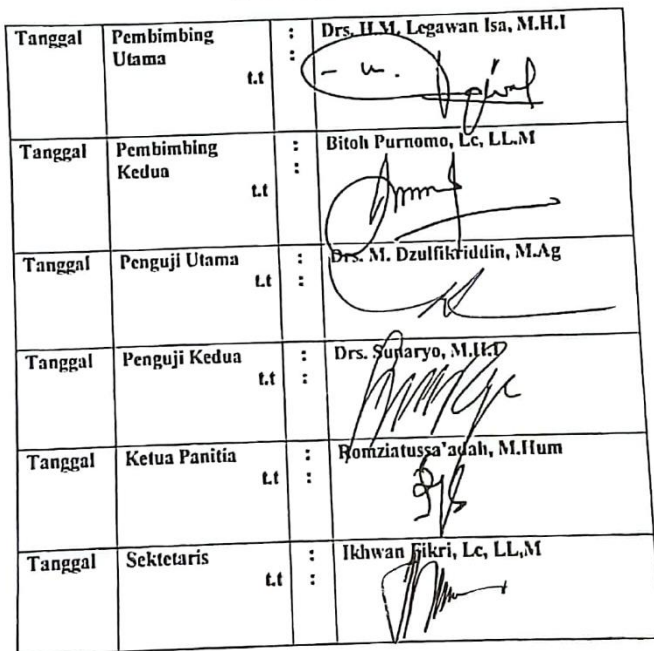 Tanggal Pembimbing : Drs. H.M. Legawan Isa, M.H.I
Utama :
t.t
Tanggal Pembimbing : Bitoh Purnomo, Lc, LL.M
Kedua :
t.t
Tanggal Penguji Utama : Drs. M. Dzulfikriddin, M.Ag
t.t :
Tanggal Penguji Kedua : Drs. Sunaryo, M.H.I
t.t :
Tanggal Ketua Panitia : Romziatussa'adah, M.Hum
t.t :
Tanggal Sektetaris : Ikhwan Fikri, Lc, LL,M
t.t :